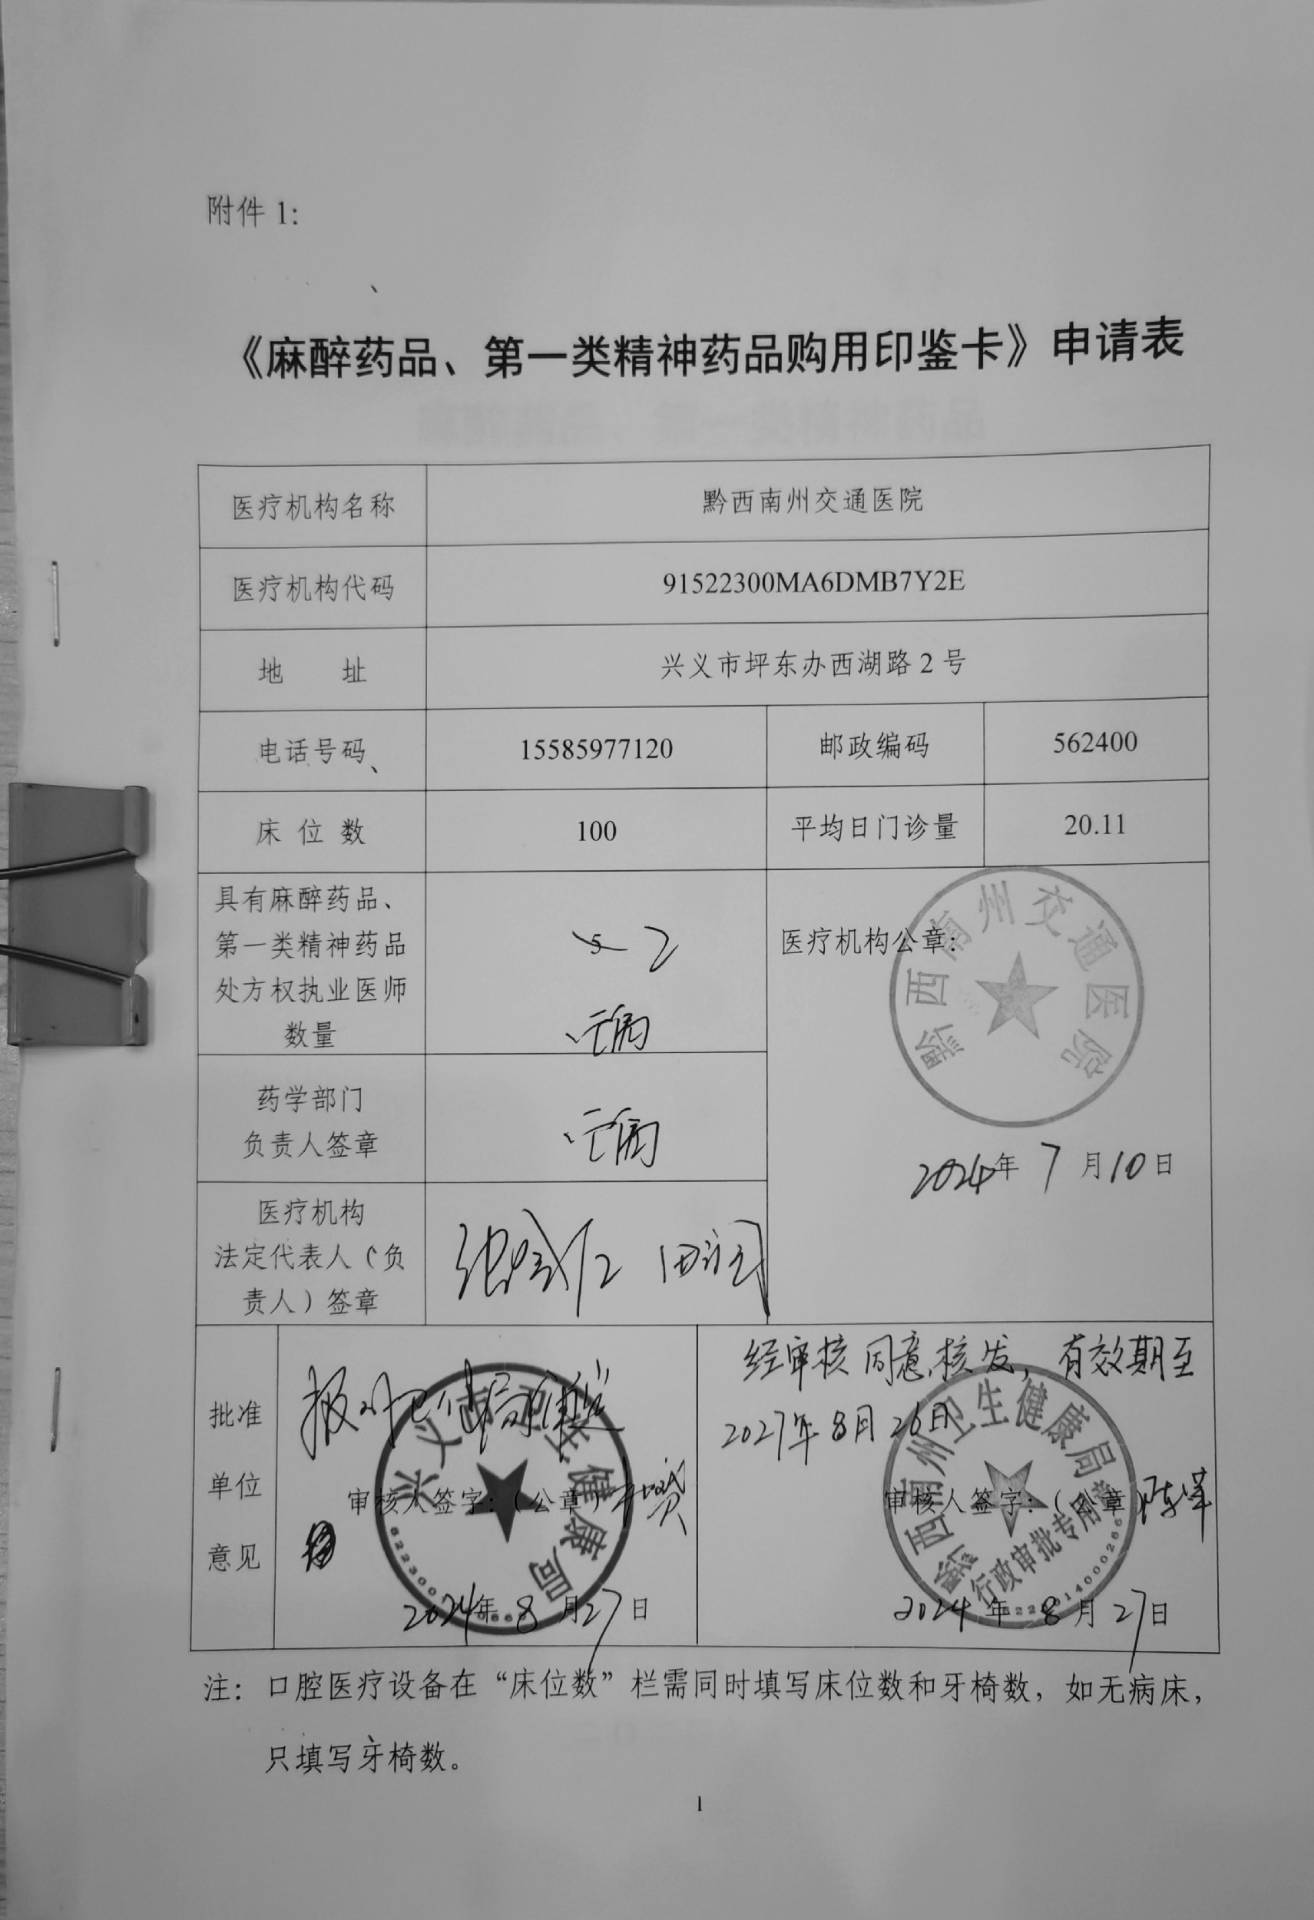 附件 1:
《麻醉药品、第一类精神药品购用印鉴卡》申请表
医疗机构名称
黔西南州交通医院
医疗机构代码
91522300MA6DMB7Y2E
地 址
兴义市坪东办西湖路 2 号
电话号码
15585977120
邮政编码
562400
床 位 数
100
平均日门诊量
20.11
具有麻醉药品、
第一类精神药品
处方权执业医师
数量
5 2
医疗机构公章:
黔西南州交通医院
2024年 7 月 10 日
药学部门
负责人签章
医疗机构
法定代表人（负
责人）签章
批准
单位
意见
审核人签字:（公章）
兴义市卫生健康局
2024年 8 月 27 日
经审核同意核发，有效期至
2027年8月26日
审核人签字:（公章
黔西南州卫生健康局
行政审批专用章
2024 年 8 月 27 日
注: 口腔医疗设备在“床位数”栏需同时填写床位数和牙椅数，如无病床，
只填写牙椅数。
1